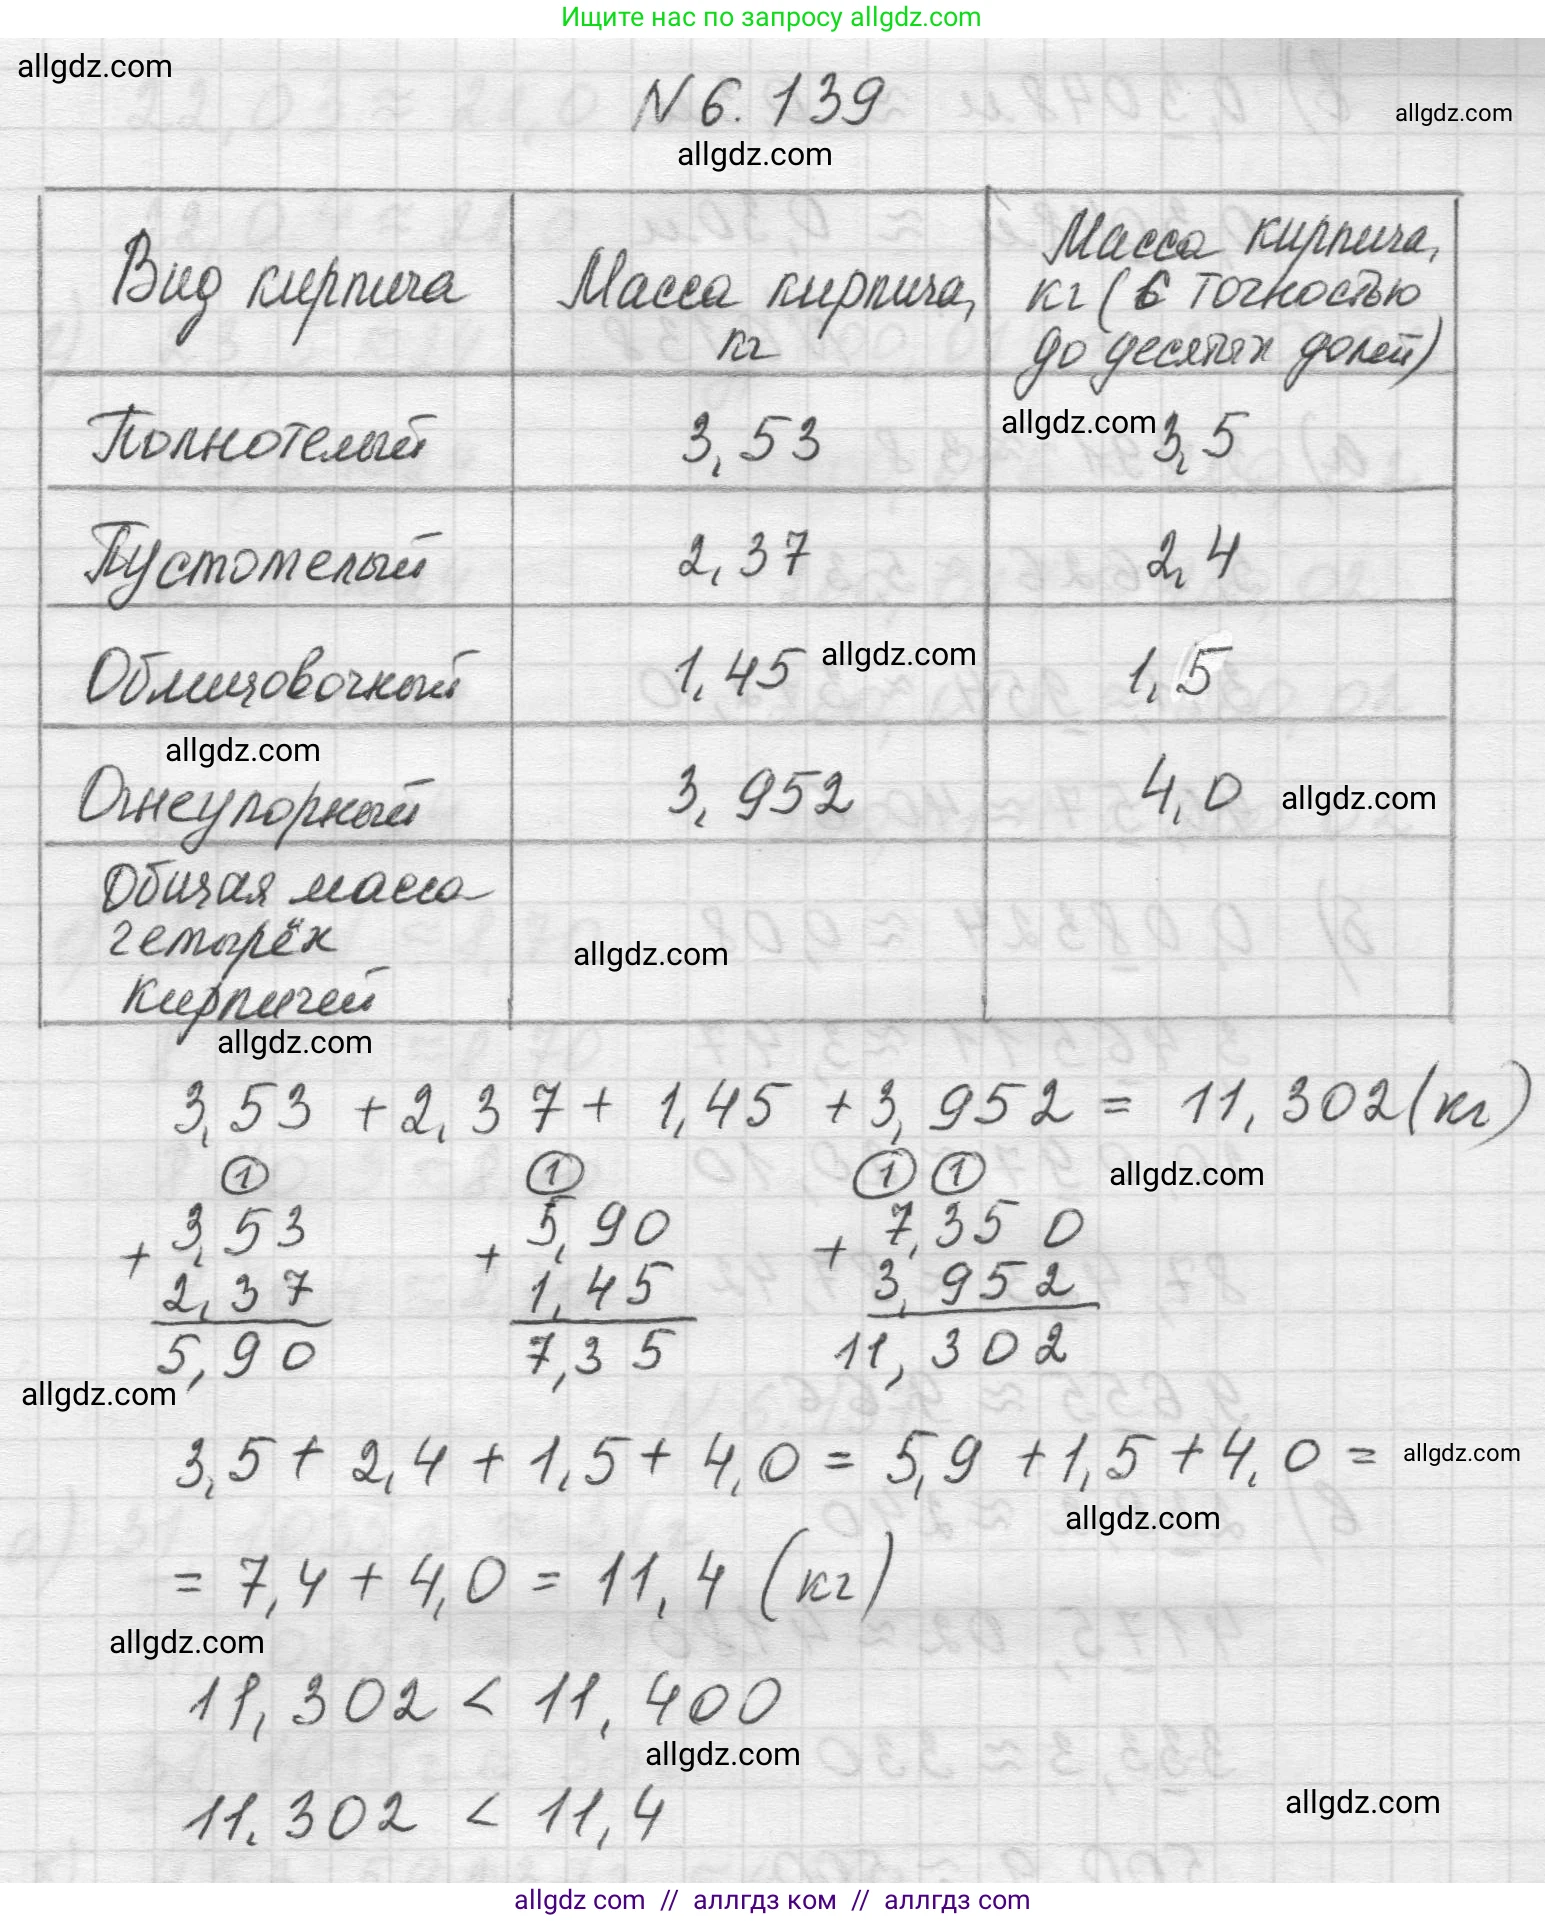 Ищите нас по запросу allgdz.com
allgdz.com
N 6.139
allgdz.com
allgdz.com
Вид кирпича
Масса кирпича, кг
Масса кирпича, кг (с точностью до десятых долей)
Полнотелый 3,53 allgdz.com 3,5
Пустотелый 2,37 2,4
Облицовочный 1,45 allgdz.com 1,5
allgdz.com
Огнеупорный 3,952 4,0 allgdz.com
Общая масса
четырёх
кирпичей
allgdz.com
allgdz.com
3,53 + 2,37 + 1,45 + 3,952 = 11,302 (кг)
1 1 1 1 allgdz.com
+ 3,53 + 5,90 + 7,350
2,37 1,45 3,952
5,90 7,35 11,302
allgdz.com
3,5 + 2,4 + 1,5 + 4,0 = 5,9 + 1,5 + 4,0 = allgdz.com
allgdz.com
= 7,4 + 4,0 = 11,4 (кг)
allgdz.com
11,302 < 11,400
allgdz.com
11,302 < 11,4
allgdz.com
allgdz com // аллгдз ком // аллгдз com